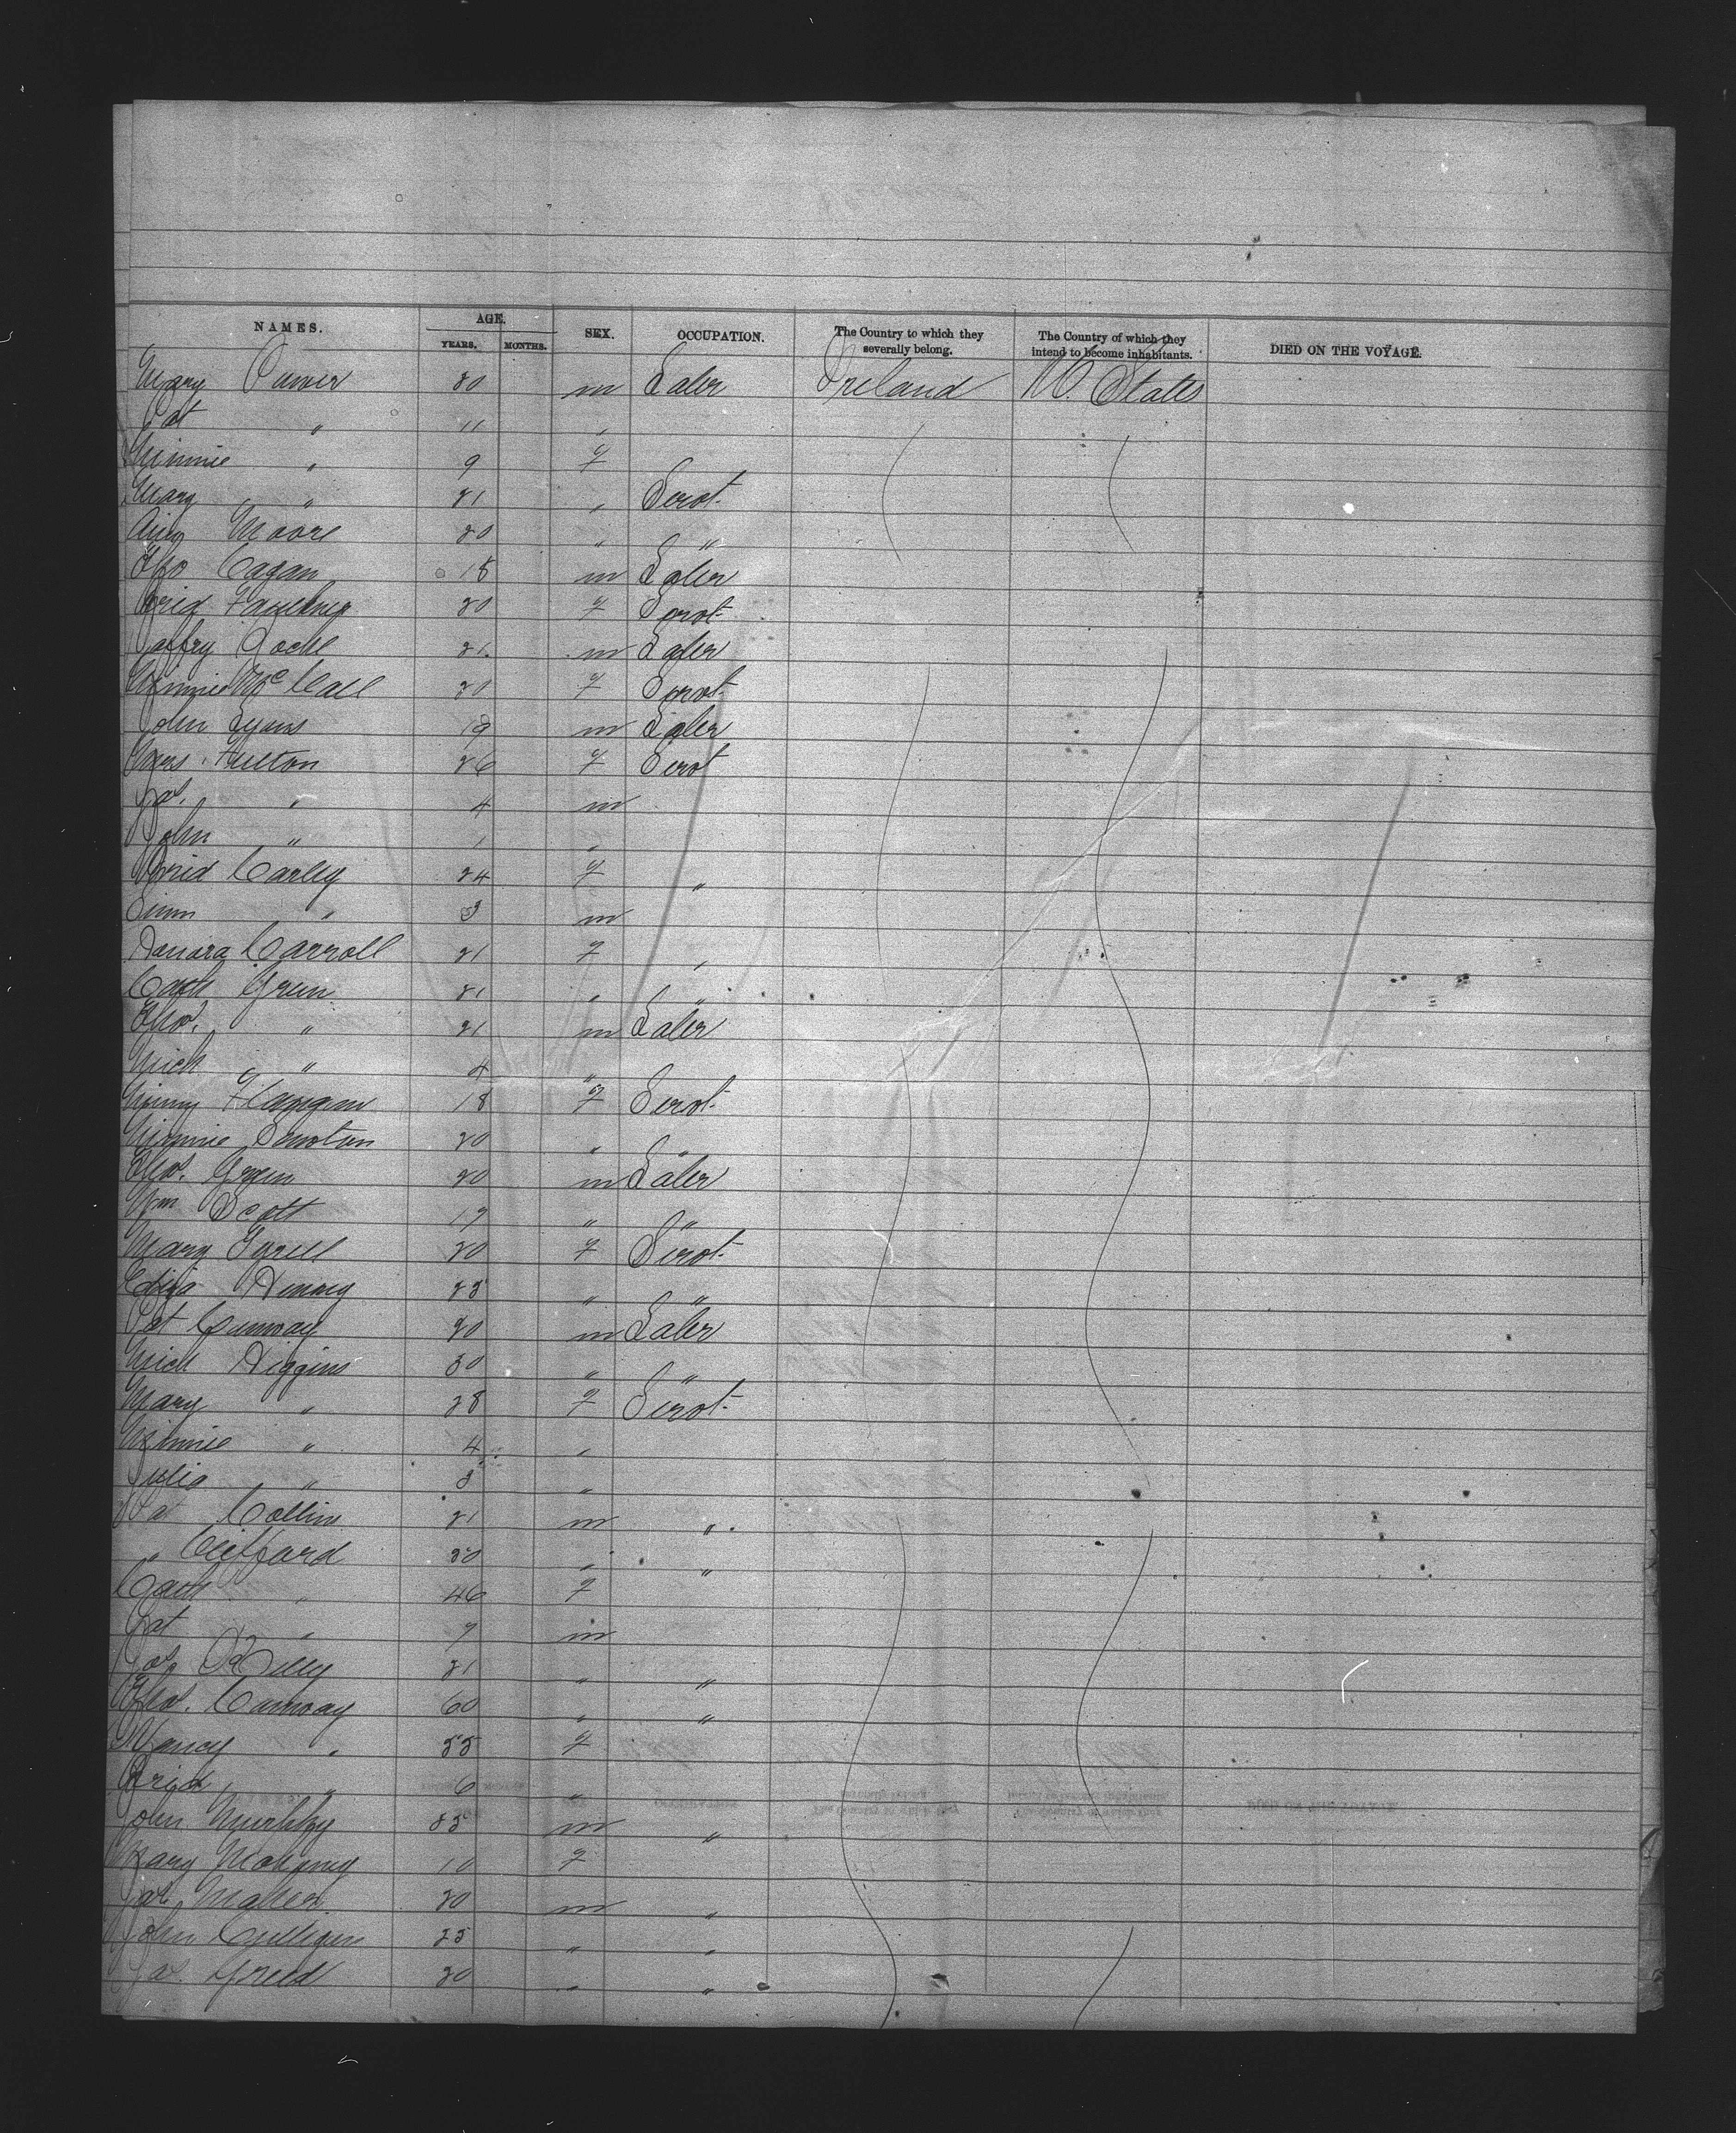 NAMES. AGE. YEARS. MONTHS. SEX. OCCUPATION. The Country to which they severally belong. The Country of which they intend to become inhabitants. DIED ON THE VOYAGE.
Mary Power 30 m Labr Ireland U. States
Pat " 11 "
Minnie " 9 f
Mary " 21 " Servt
Moore 20 " "
Tho Cagan 18 m Labr
Brid Faulkner 20 f Servt
21 m Labr
Minnie McCall 20 f Servt
John Lyons 19 m Labr
Mrs. Fulton 26 f Servt
Jas. " 4 m
John " 1 "
Brid Carley 24 f "
" 3 m
Honora Carroll 21 f "
Cath Green 21 " "
Thos. " 21 m Labr
Mich " 4 "
18 f Servt
Minnie 20 " "
Thos. Green 20 m Labr
Wm Scott 19 " "
Mary Tyrell 20 f Servt
Eliza 25 " "
Pat Cunway 20 m Labr
Mich Higgins 30 " "
Mary " 28 f Servt
Minnie " 4 "
Julia " 3 "
Pat Collins 21 m "
" Clifford 50 " "
Cath " 46 f
Pat " 9 m
Jas 21 " "
Thos. Cunway 60 " "
Nancy " 55 f
Brid " 6 "
John Murphy m "
Mary 10 f
Jas Maher 20 m "
John 25 " "
Jas. 20 " "